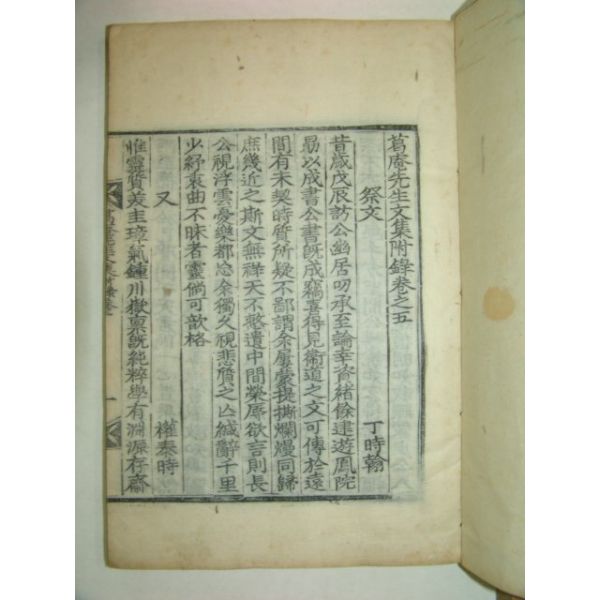 葛庵先生文集附錄卷之五
祭文 丁時翰
昔歲戊辰訪公幽居叨承至論幸資緖餘建遊鳳院
勗以成書公書旣成竊喜得見衛道之文可傳於遠
間有未契時質所疑不鄙謂余屢蒙提撕爛熳同歸
庶幾近之斯文無祥天不憖遺中間榮辱欲言則長
公視浮雲憂樂都忘余獨久視悲質之亡緘辭千里
少紓衷曲不昧者靈倘可歆格
又 權泰時
惟靈質美圭璋氣鍾川嶽禀旣純粹學有淵源存齋